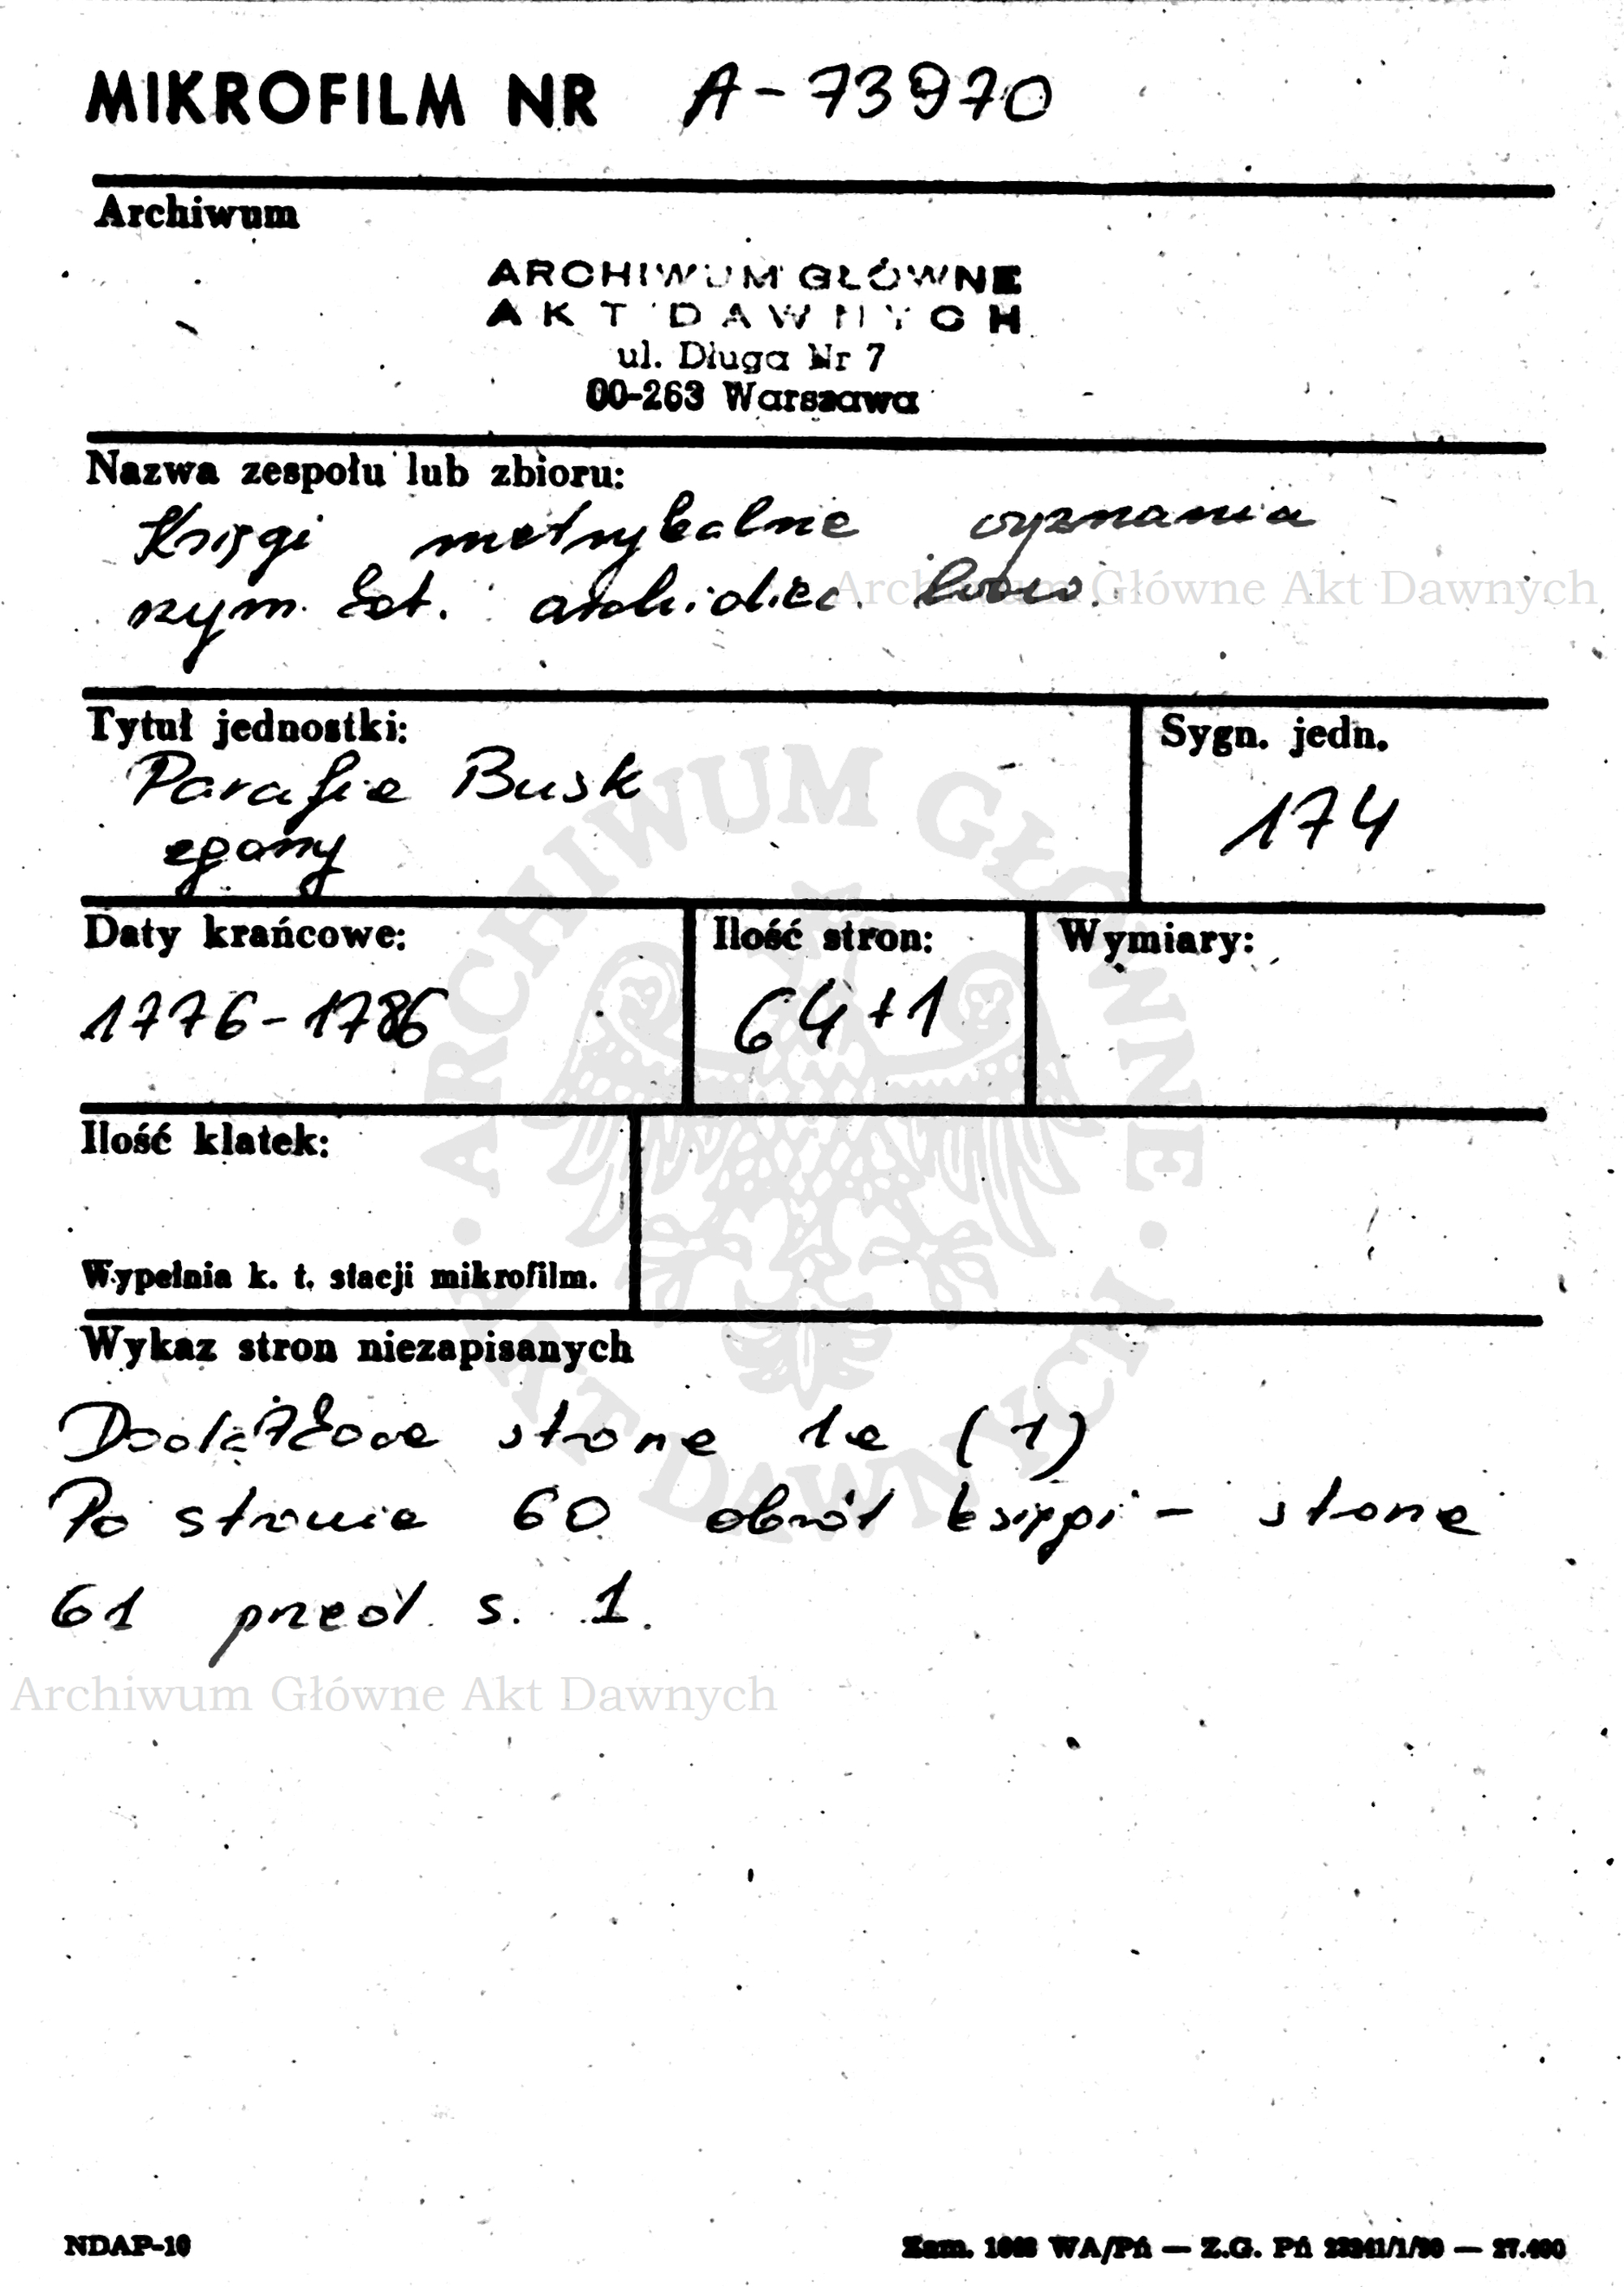 MIKROFILM NR A-73970
Archiwum
ARCHIWUM GŁÓWNE
AKT DAWNYCH
ul. Długa Nr 7
00-263 Warszawa
Nazwa zespołu lub zbioru:
Księgi metrykalne wyznania
rzym. kat. archidiec. lwow.
Archiwum Główne Akt Dawnych
Tytuł jednostki:
Parafia Busk
zgony
Sygn. jedn.
174
Daty krańcowe:
1776-1786
Ilość stron:
64+1
Wymiary:
Ilość klatek:
Wypełnia k. t. stacji mikrofilm.
ARCHIWUM GŁÓWNE
AKT DAWNYCH
Wykaz stron niezapisanych
Dodatkowa strona 1a (1)
Po stronie 60 obrót księgi - strona
61 przed s. 1.
Archiwum Główne Akt Dawnych
NDAP-10
Zam. WA/Pń — Z.G. Pń —